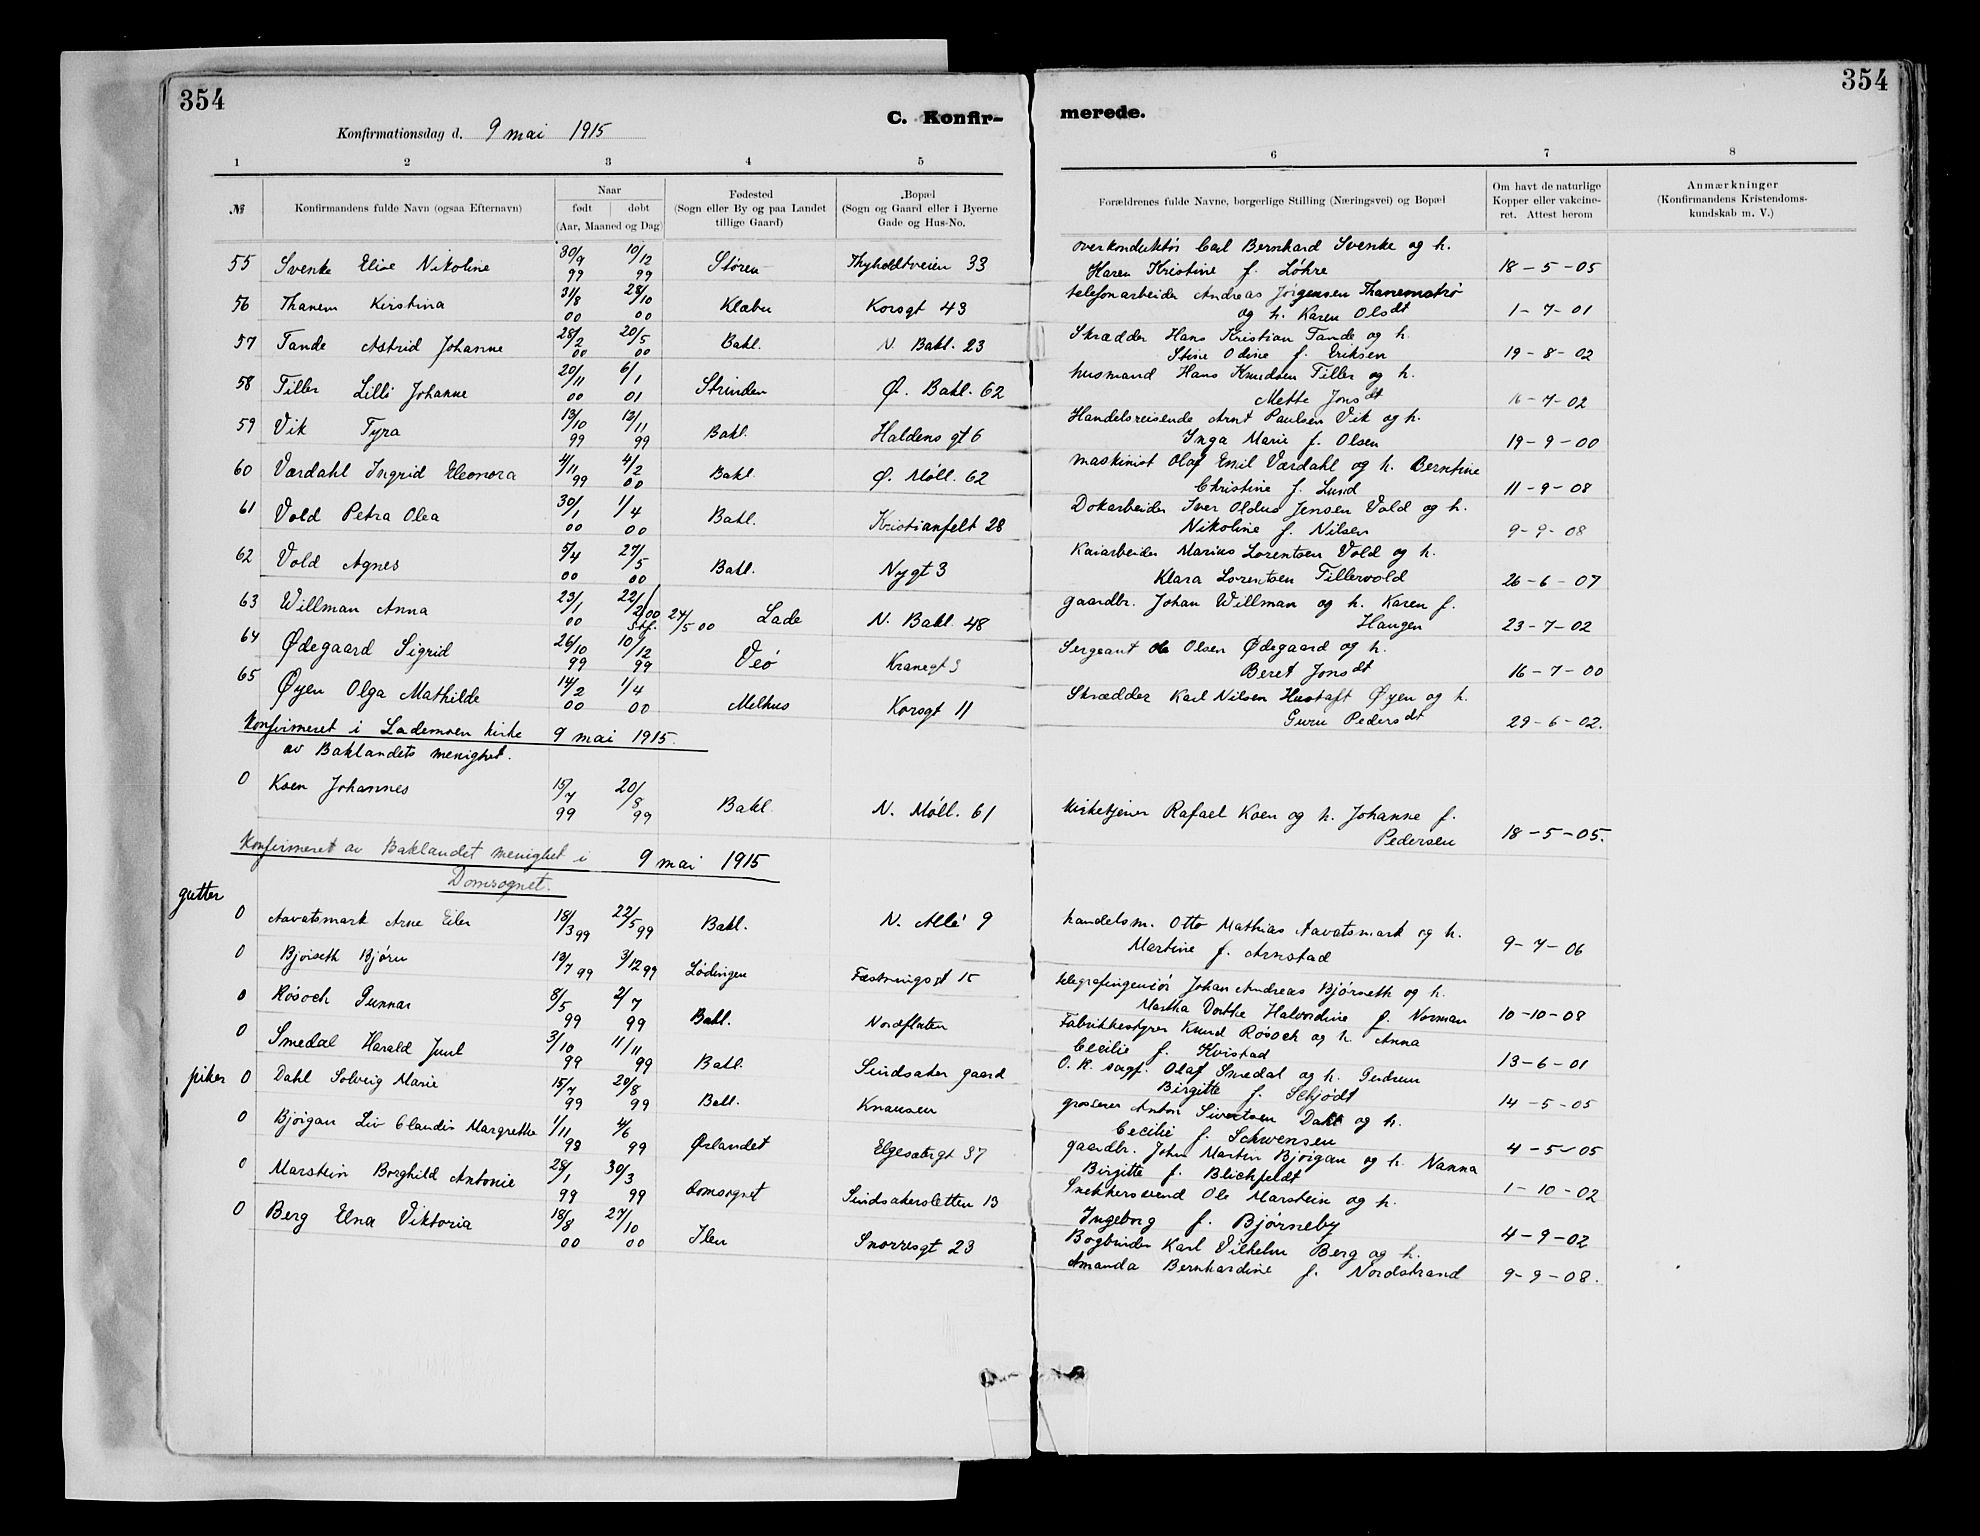 354
354
C. Konfir-
merede.
Konfirmationsdag d. 9 mai 1915
1 2 3 4 5 6 7 8
№
Konfirmandens fulde Navn (ogsaa Efternavn)
Naar
født døbt
(Aar, Maaned og Dag)
Fødested
(Sogn eller By og paa Landet
tillige Gaard)
Bopæl
(Sogn og Gaard eller i Byerne
Gade og Hus-No.
Forældrenes fulde Navne, borgerlige Stilling (Næringsvei) og Bopæl
Om havt de naturlige
Kopper eller vakcine-
ret. Attest herom
Anmærkninger
(Konfirmandens Kristendoms-
kundskab m. V.)
55 Svenke Elise Nikoline 30/9 99 10/12 99 Støren Thyholdtveien 33 overkonduktør Carl Bernhard Svenke og h.
Karen Kristine f. Løhre 18-5-05
56 Thanem Kirstina 31/8 00 28/10 00 Klæbu Korsgt 43 telefonarbeider Andreas Jørgensen Thanemstrø
og h. Karen Olsdt 1-7-01
57 Tande Astrid Johanne 28/2 00 20/5 00 Bakl. N. Bakl. 23 Skrædder Hans Kristian Tande og h.
Stine Odine f. Eriksen 19-8-02
58 Tiller Lilli Johanne 20/11 00 6/1 01 Strinden Ø. Bakl. 62 husmand Hans Knudsen Tiller og h.
Mette Jonsdt 16-7-02
59 Vik Tyra 13/10 99 12/11 99 Bakl. Haldens gt 6 Handelsreisende Arnt Paulsen Vik og h.
Inga Marie f. Olsen 19-9-00
60 Værdahl Ingrid Eleonora 4/11 99 4/2 00 Bakl. Ø. Møll. 62 maskinist Olaf Emil Værdahl og h. Berntine
Christine f. Lund 11-9-08
61 Vold Petra Olea 30/1 00 1/4 00 Bakl. Kristianfelt 28 Dokarbeider Iver Oldus Jensen Vold og h.
Nikoline f. Nilsen 9-9-08
62 Vold Agnes 5/4 00 27/5 00 Bakl. Nygt 3 Kaiarbeider Marius Lorentsen Vold og h.
Klara Lorentsen Tillervold 26-6-07
63 Willman Anna 23/1 00 22/2 00 stf. 24/5 00 Lade N. Bakl. 48 gaardbr. Johan Willman og h. Karen f.
Haugen 23-7-02
64 Ødegaard Sigrid 26/10 99 10/12 99 Veø Kranegt 3 Sergeant Ole Olsen Ødegaard og h.
Beret Jonsdt 16-7-00
65 Øyen Olga Mathilde 14/2 00 1/4 00 Melhus Korsgt 11 Skrædder Karl Nilsen Hustaft Øyen og h.
Guru Pedersdt 29-6-02.
Konfirmeret i Lademoen kirke 9 mai 1915.
av Baklandets menighet.
0 Koen Johannes 15/7 99 20/8 99 Bakl N. Møll. 61 Kirketjener Rafael Koen og h. Johanne f.
Pedersen 18-5-05.
Konfirmeret av Baklandet menighet i 9 mai 1915
Domsognet.
gutter
0 Aavatsmark Arne Eiler 18/3 99 22/5 99 Bakl. N. Allé 9 handelsm. Otto Mathias Aavatsmark og h.
Martine f. Arnstad 9-7-06
0 Bjørseth Bjørn 13/7 99 3/12 99 Lødingen Fæstningsgt 15 telegrafingeniør Johan Andreas Bjørseth og h.
Martha Dorthe Halvordine f. Norman 10-10-08
0 Røsoch Gunnar 8/5 99 2/7 99 Bakl. Nordflaten Fabrikkestyrer Knud Røsoch og h Anna
Cecilie f. Kvistad 13-6-01
0 Smedal Harald Juul 3/10 99 11/11 99 Bakl. Sindsaker gaard O. R. sagf. Olaf Smedal og h. Gudrun
Birgitte f. Schjødt 14-5-05
piker 0 Dahl Solveig Marie 15/7 99 20/8 99 Bakl. Knausen grosserer Anton Sivertsen Dahl og h.
Cecilie f. Schwensen 4-5-05
0 Bjørgan Liv Claudis Margrethe 1/11 98 4/6 99 Ørlandet Elgesætergt 37 gaardbr. John Martin Bjørgan og h. Nanna
Birgitte f. Blichfeldt 1-10-02
0 Marstein Borghild Antonie 28/1 99 30/3 99 Domsognet Sindsakersletten 13 Snekkersvend Ole Marstein og h.
Ingeborg f. Bjørneby 4-9-02
0 Berg Elna Viktoria 18/8 00 27/10 00 Ilen Snorresgt 23 Bogbinder Karl Vilhelm Berg og h.
Amanda Bernhardine f. Nordstrand 9-9-08.